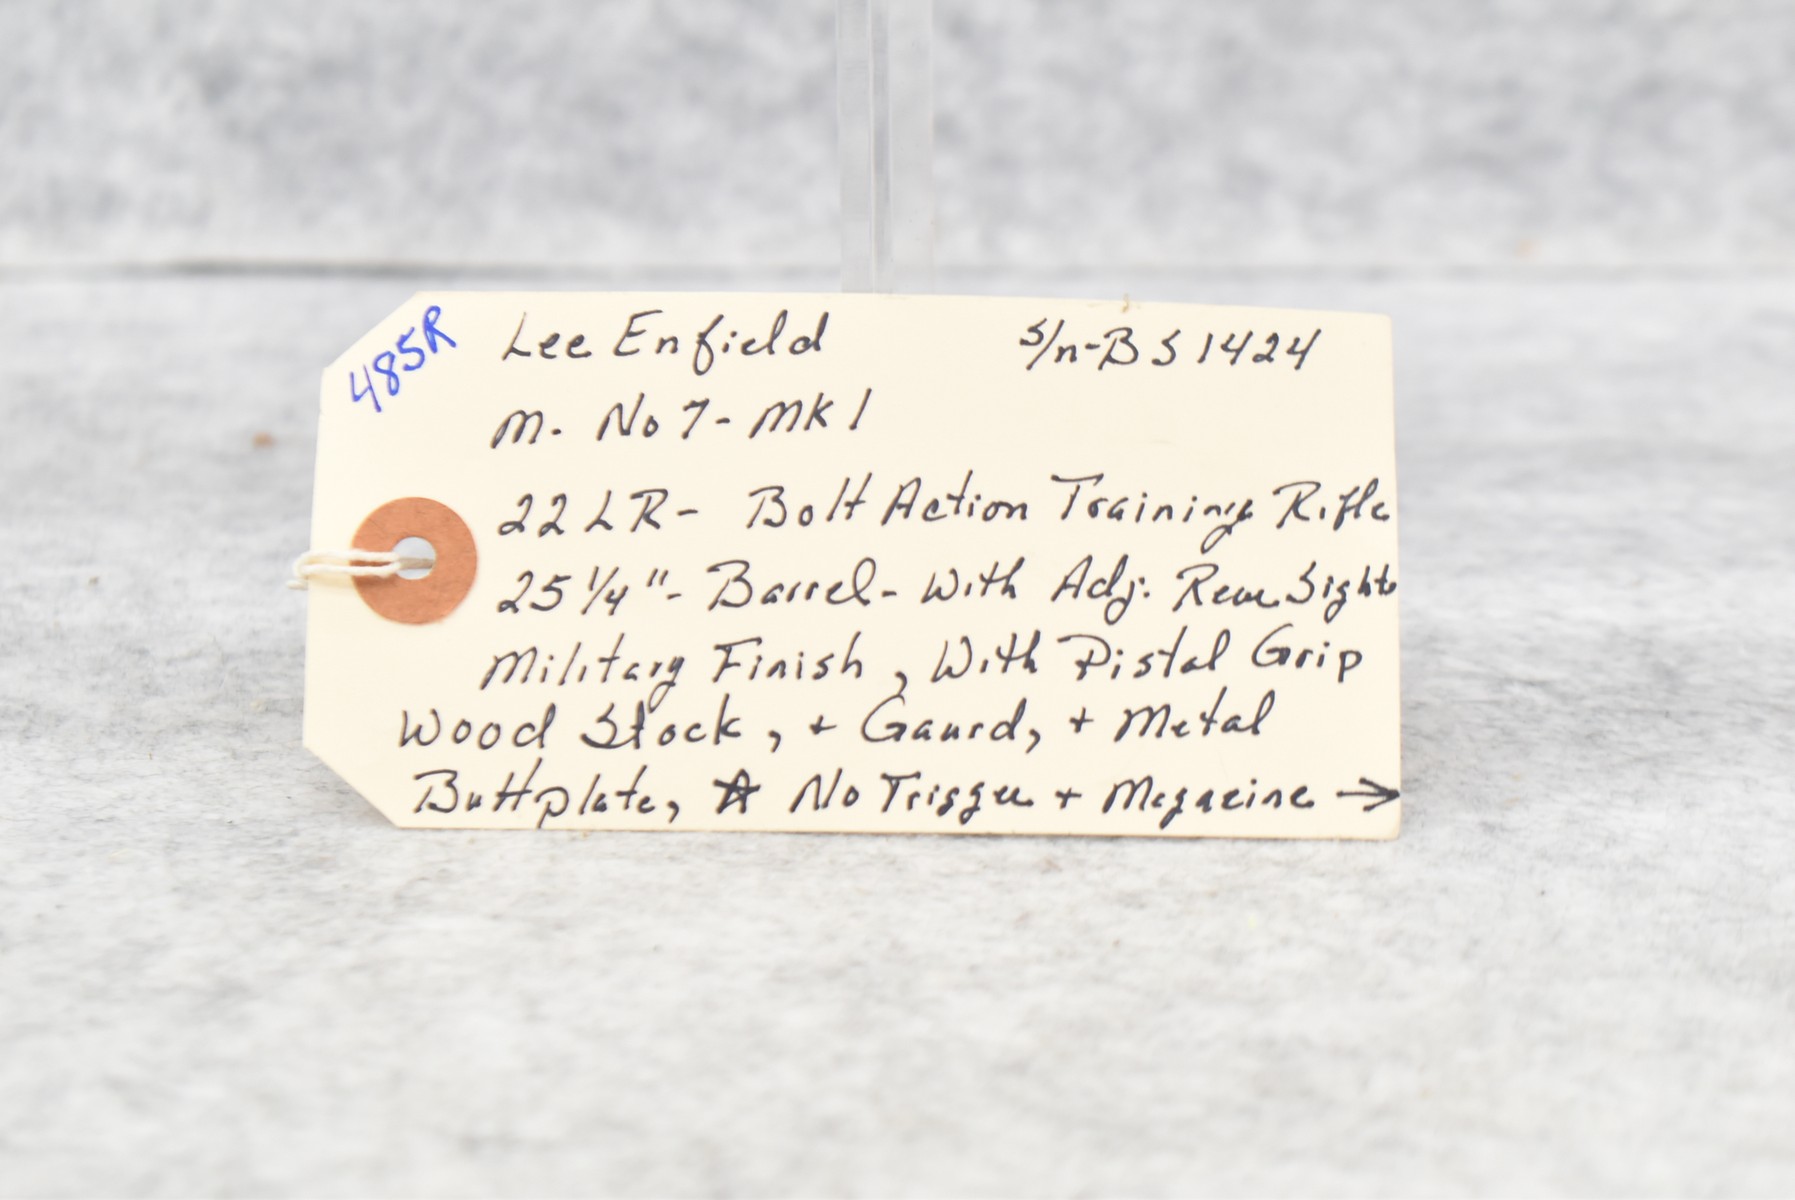 485R
Lee Enfield S/n-BS1424
M. No 7- MK 1
22 LR- Bolt Action Training Rifle
25 1/4"- Barrel- With Adj. Rear Sights
Military Finish, With Pistal Grip
Wood Stock, + Gaurd, + Metal
Buttplate, ☆ No Trigger + Magazine →